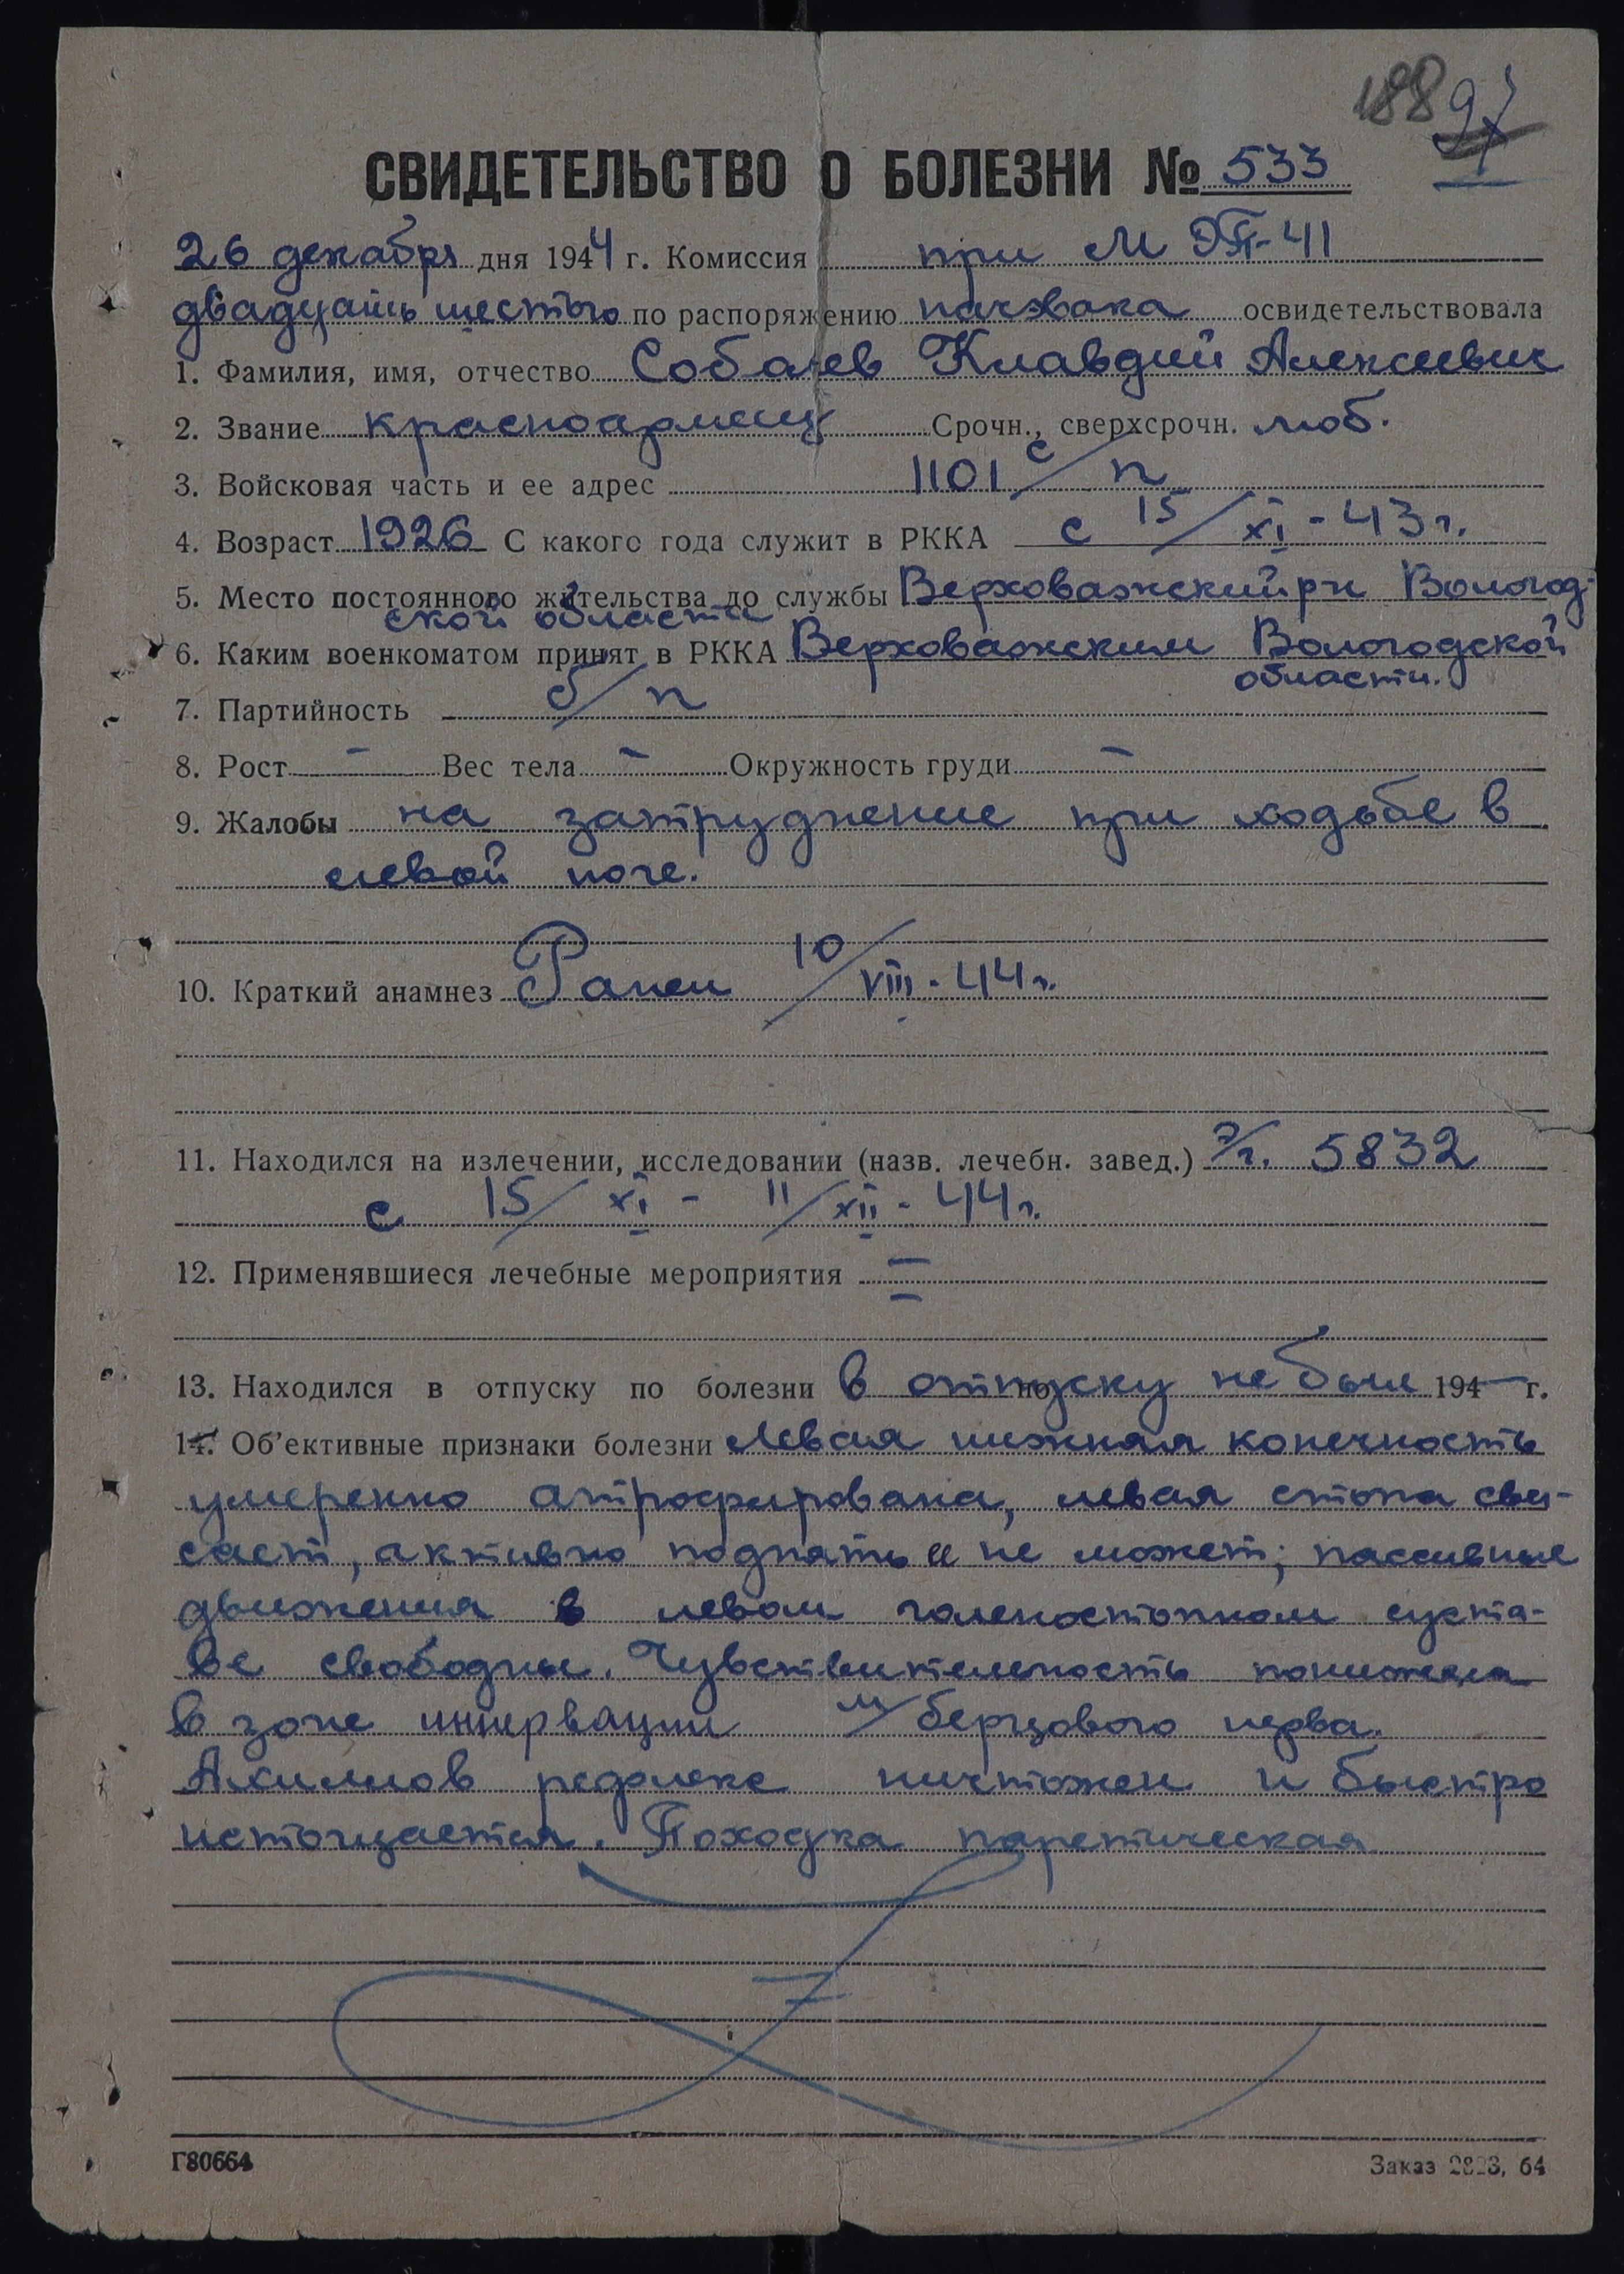 188 97
СВИДЕТЕЛЬСТВО О БОЛЕЗНИ № 533
26 декабря дня 1944 г. Комиссия при М ЭП-41
двадцать шестого по распоряжению начэвака освидетельствовала
1. Фамилия, имя, отчество Собаев Клавдий Алексеевич
2. Звание красноармеец Срочн., сверхсрочн. моб.
3. Войсковая часть и ее адрес 1101 с/п
4. Возраст 1926 С какого года служит в РККА с 15/XI-43 г.
5. Место постоянного жительства до службы Верховажский рн Вологод-
ской области
6. Каким военкоматом принят в РККА Верховажским Вологодской
области.
7. Партийность б/п
8. Рост - Вес тела - Окружность груди -
9. Жалобы на затруднение при ходьбе в
левой ноге.
10. Краткий анамнез Ранен 10/VIII-44 г.
11. Находился на излечении, исследовании (назв. лечебн. завед.) э/г. 5832
с 15/XI - 11/XII-44 г.
12. Применявшиеся лечебные мероприятия =
13. Находился в отпуску по болезни в отпуску не был по 194- г.
14. Об'ективные признаки болезни Левая нижняя конечность
умеренно атрофирована, левая стопа сви-
сает, активно поднять ее не может; пассивные
движения в левом голеностопном суста-
ве свободны. Чувствительность понижена
в зоне иннервации м/берцового нерва.
Ахиллов рефлекс ничтожен и быстро
истощается. Походка паретическая
Г80664
Заказ 2823, 64